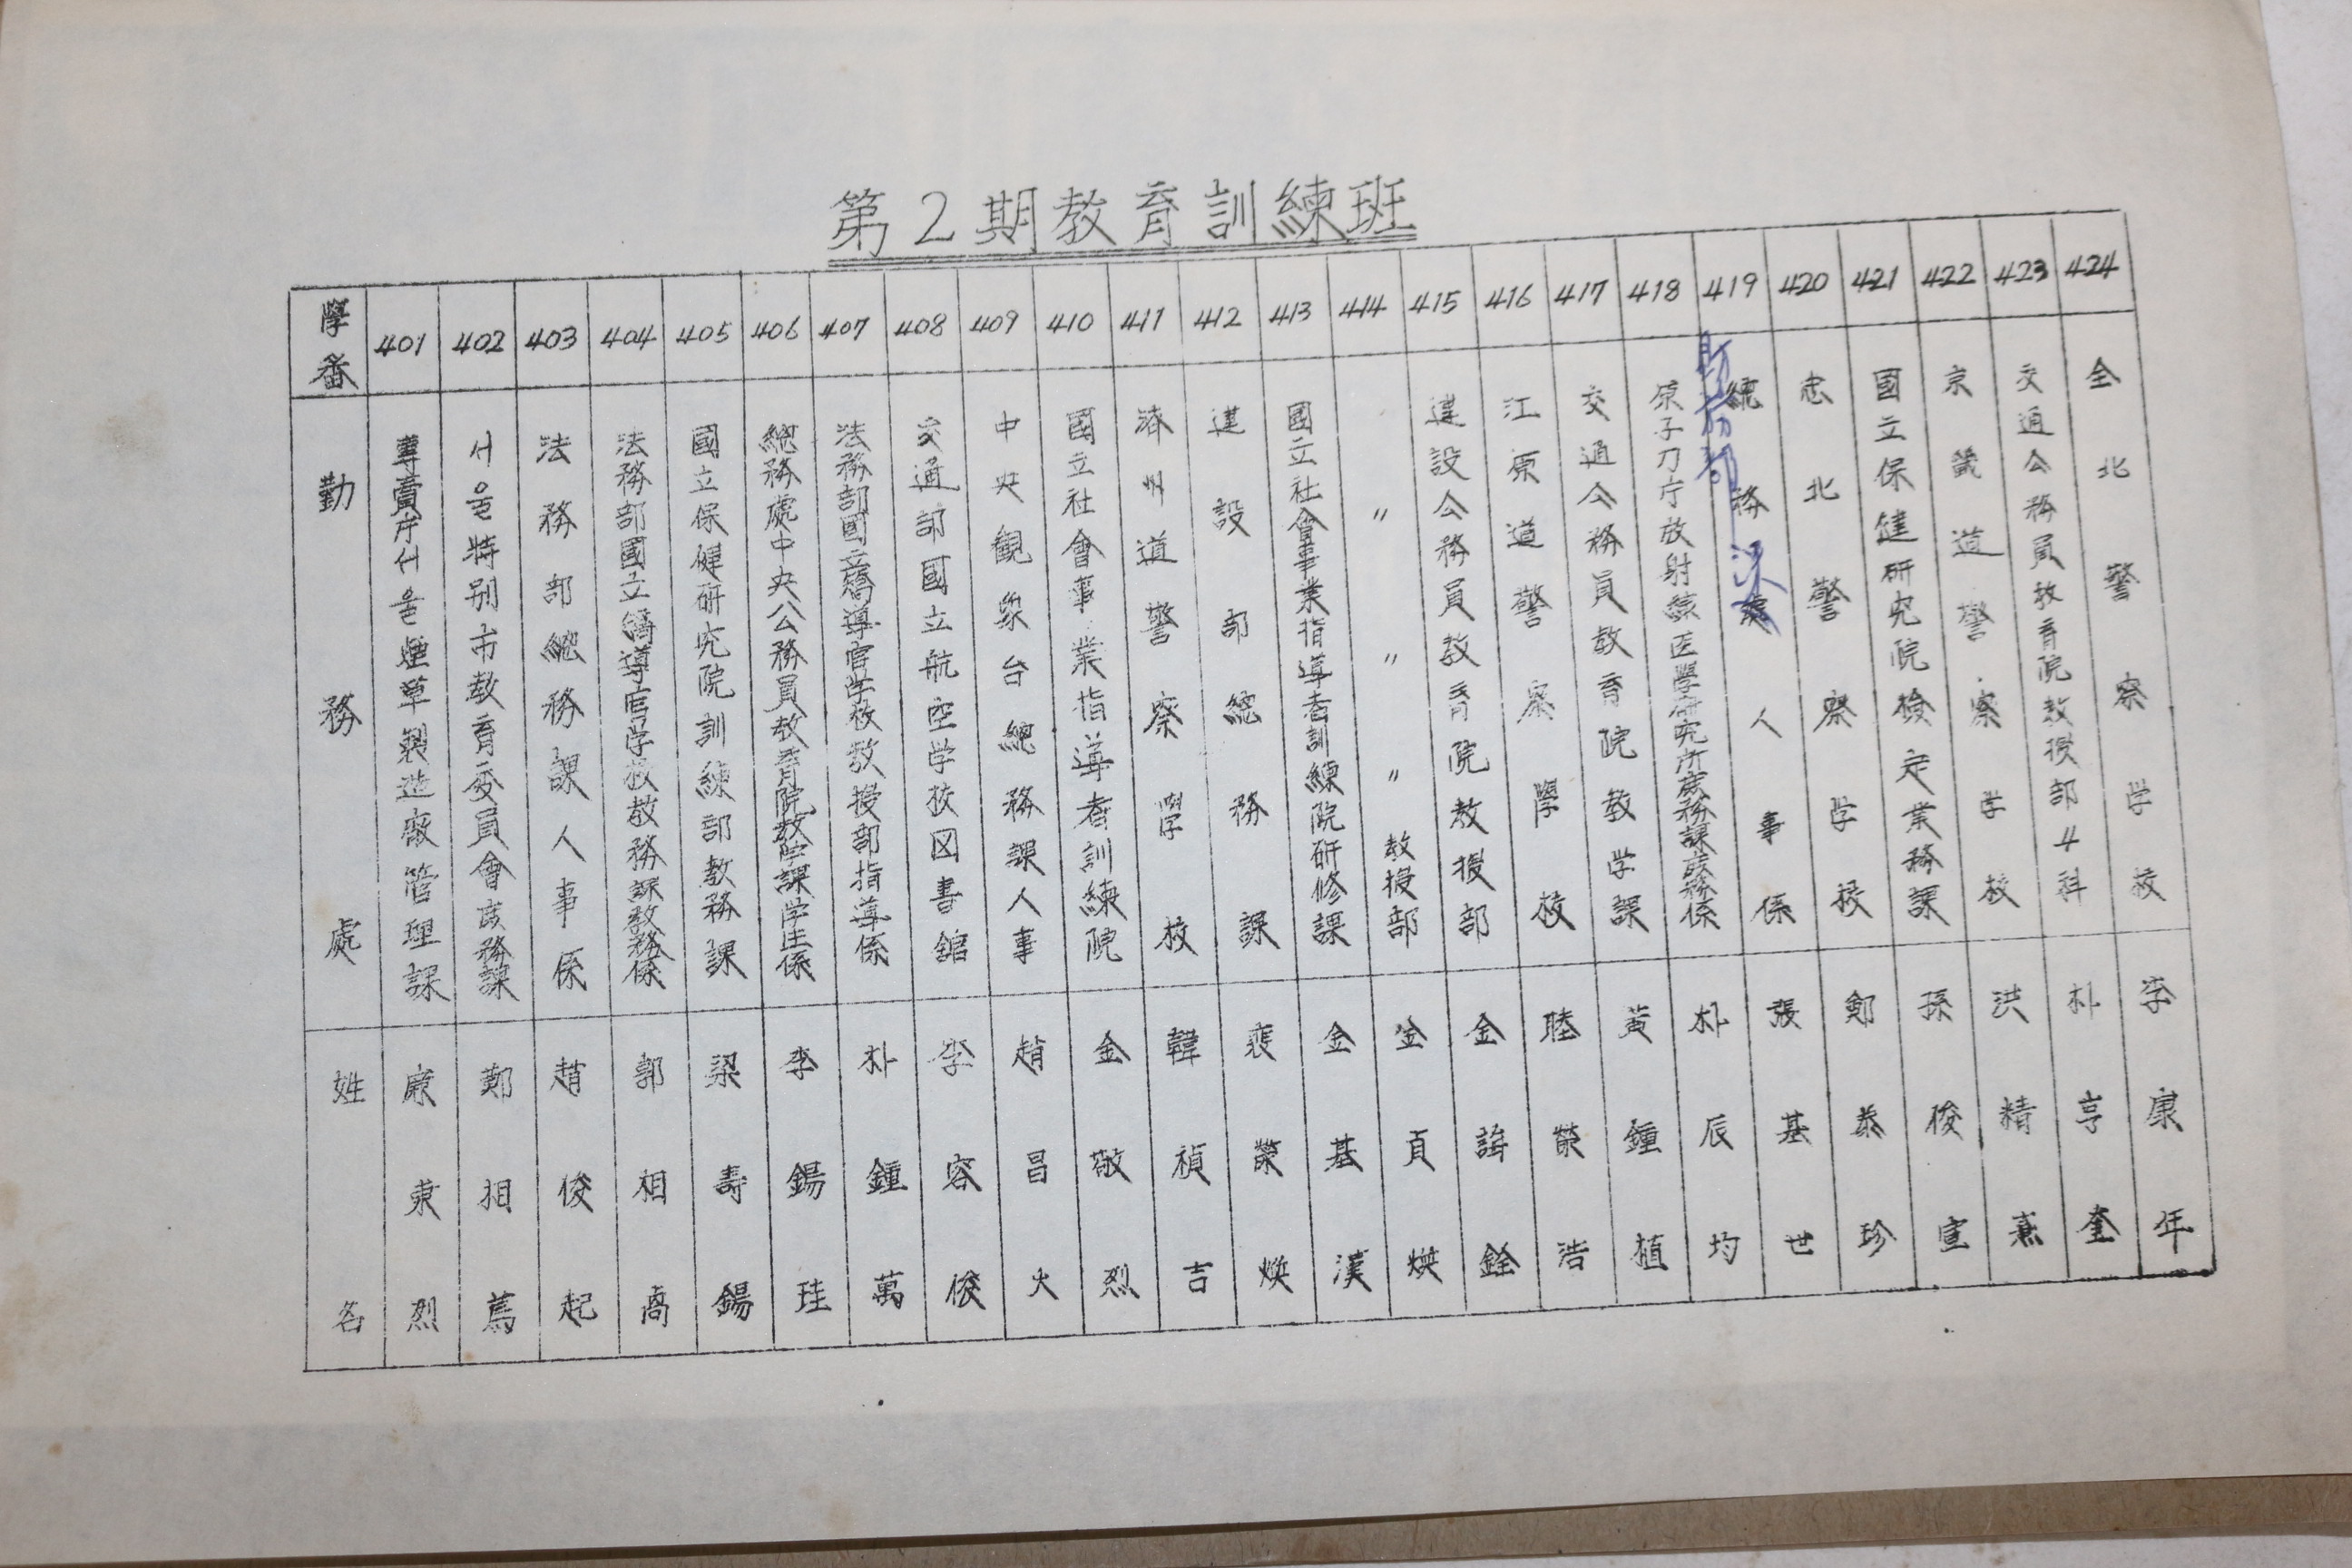 第2期教育訓練班
學番 勤務處 姓名
401 專賣庁서울煙草製造廠管理課 康東烈
402 서울特別市敎育委員會庶務課 鄭相薦
403 法務部總務課人事係 趙俊起
404 法務部國立矯導官学校敎務課敎務係 郭相卨
405 國立保健研究院訓練部敎務課 梁壽錫
406 總務處中央公務員敎育院敎学課学生係 李錫珪
407 法務部國立矯導官学校敎授部指導係 朴鍾萬
408 交通部國立航空学校図書舘 李容俊
409 中央観象台總務課人事 趙昌大
410 國立社會事業指導者訓練院 金敬烈
411 済州道警察學校 韓禎吉
412 建設部總務課 裵榮煥
413 國立社會事業指導者訓練院研修課 金基漢
414 〃 〃 〃 敎授部 金貞煥
415 建設公務員敎育院敎授部 金銓
416 江原道警察學校 睦榮浩
417 交通公務員敎育院敎学課 黃鍾植
418 原子力庁放射線医學研究所庶務課庶務係 朴辰均
419 總務處人事係 張基世
財務部
420 忠北警察学校 鄭泰珍
421 國立保健研究院檢定業務課 孫俊宣
422 京畿道警察学校 洪精憙
423 交通公務員敎育院敎授部 4科 朴亨奎
424 全北警察学校 李康年